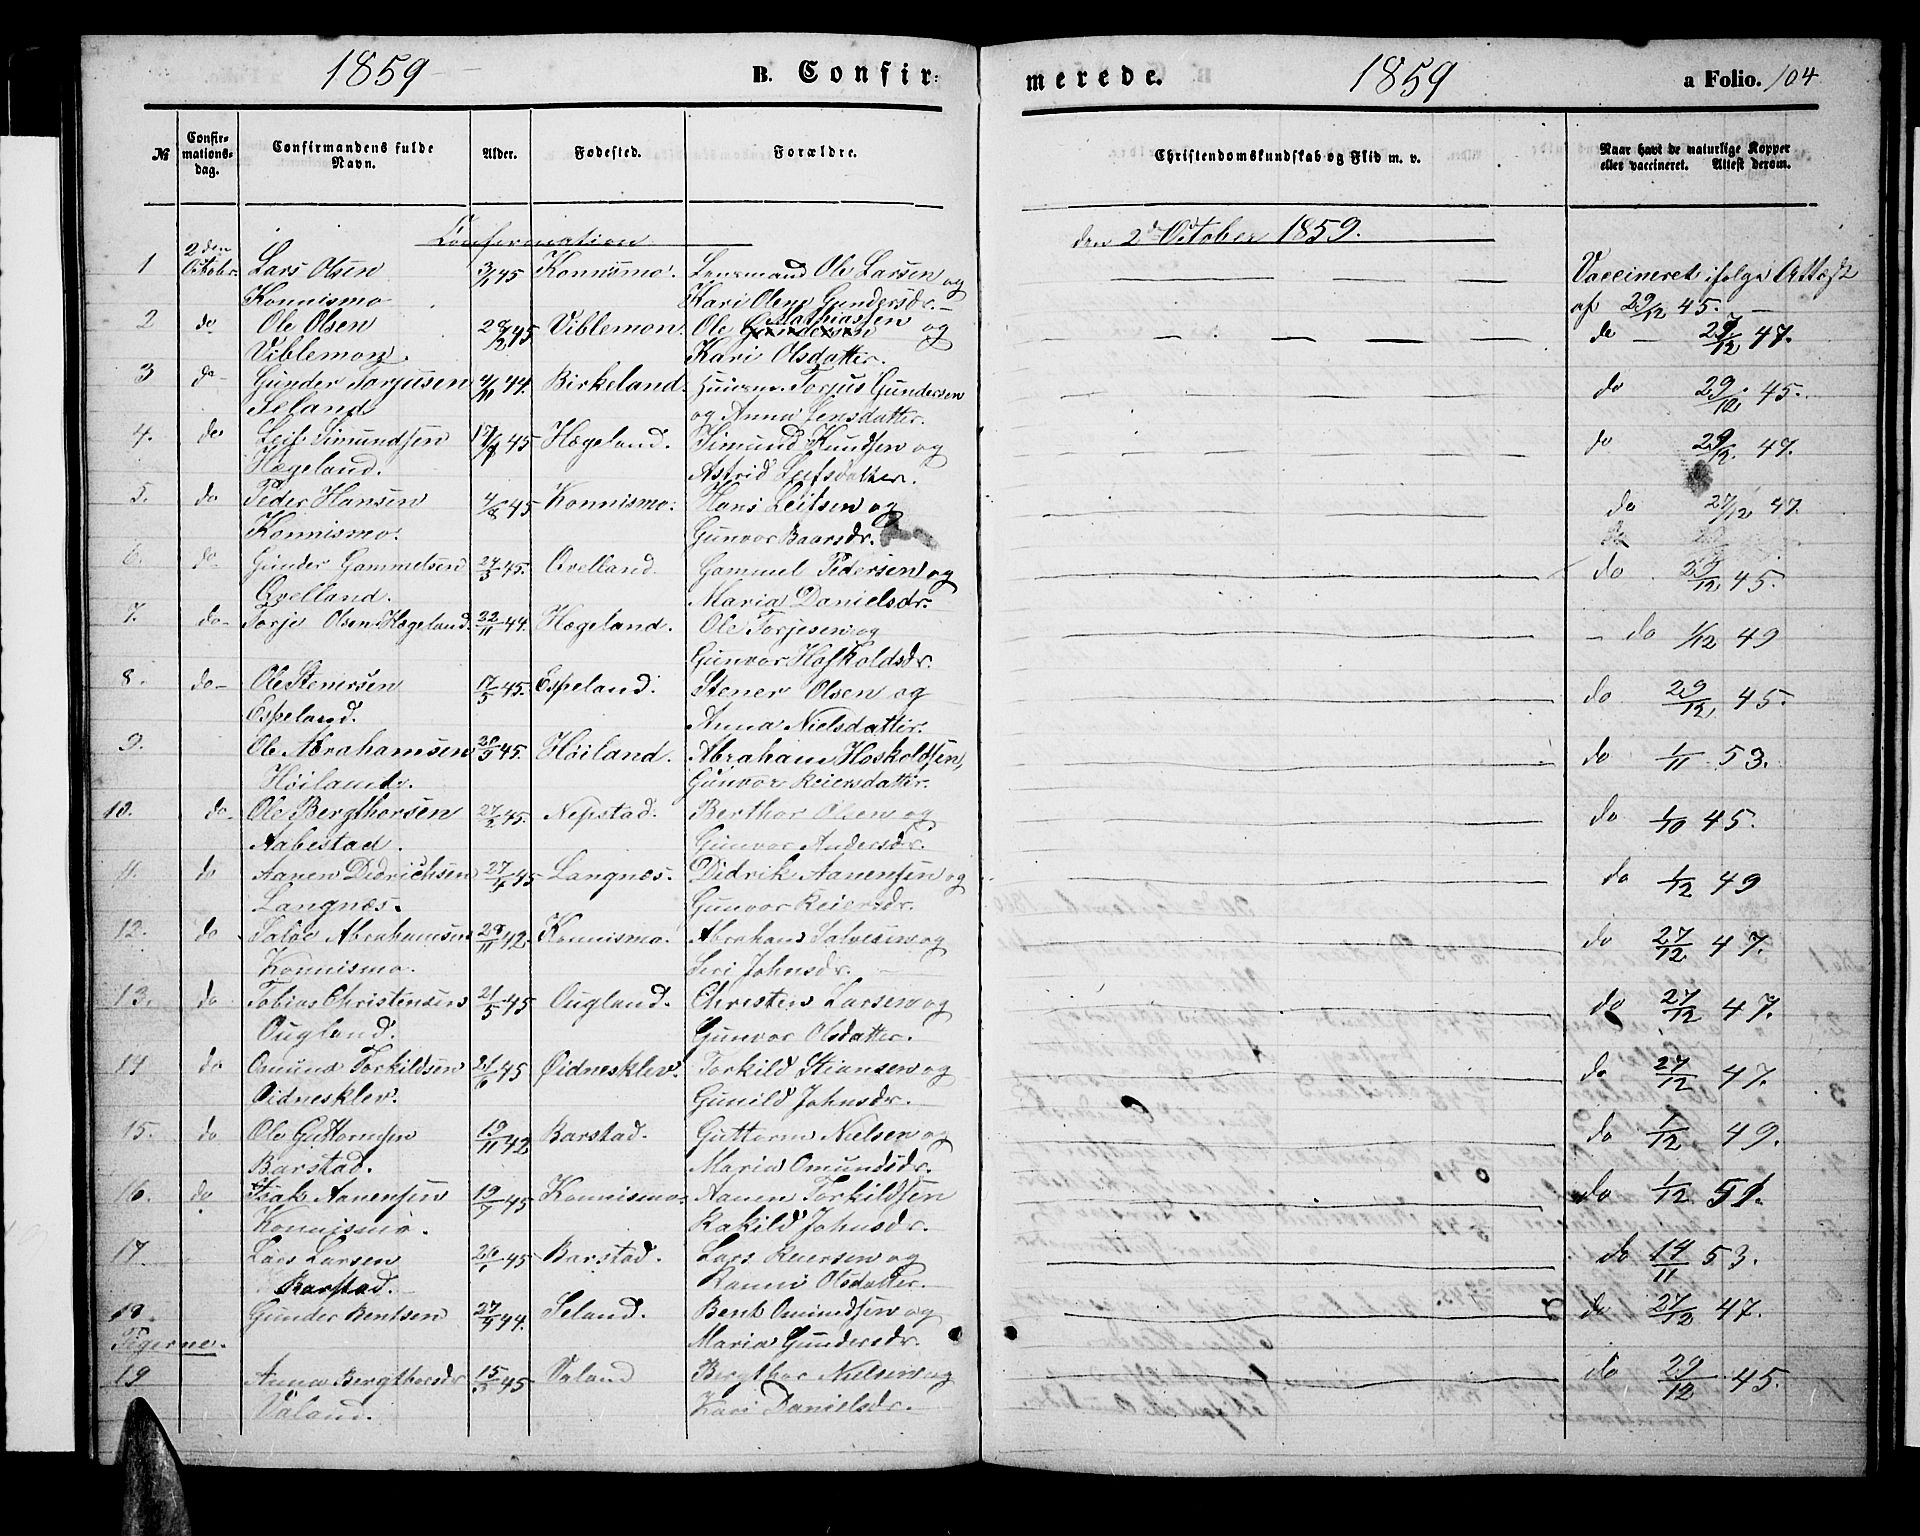 1859
B. Confir-
merede.
1859
a Folio. 104
№
Confir-
mations-
dag.
Confirmandens fulde
Navn.
Alder.
Fødested.
Forældre.
Christendomskundskab og Flid m. v.
Naar havt de naturlige Kopper
eller vaccineret. Attest derom.
Confirmation den 2d October 1859.
1 2den October Lars Olsen 3/1 45 Konnismo. Lensmand Ole Larsen og Vaccineret ifølge Attest
Konnismo Kari Olene Gundersdr. af 29/12 45.
2 do Ole Olsen 28/2 45 Viblemon. Ole Gundersen Mathiassen og do 27/12 47.
Viblemon. Kari Olsdatter.
3 do Gunder Torjusen 4/11 44. Birkeland. Torjus Gundersen do 29/12 45.
Seland og Anna Jensdatter.
4. do Leif Simundsen 45 Hægeland. Simund Knudsen og do 29/12 47.
Hægeland. Astrid Leifsdatter.
5. do Peder Hansen 4/8 45 Konnismo. Hans Leifsen og do 27/12 47.
Konnismo. Gunvor Baarsdr.
6. do Gunder Gammelsen 27/3 45. Qvelland. Gammel Pedersen og do 29/12 45.
Qvelland. Maria Danielsdr.
7. do Torje Olsen Hægeland. 22/11 44. Hægeland. Ole Torjesen og do 1/12 49
Gunvor Hoskoldsdr.
8. do Ole Stenersen 17/5 45. Espeland. Stener Olsen og do 29/12 45.
Espeland. Anna Nielsdatter.
9. Ole Abrahamsen 20/3 45. Høiland. Abraham Hoskoldsen, do 1/11 53.
Høiland. Gunvor Reiersdatter.
10. do Ole Bergthorsen 27/2 45. Nepstad. Berthor Olsen og do 1/10 45.
Aabestad. Gunvor Andersdr.
11. do Aanen Didrichsen 27/4 45 Langnæs. Didrik Aanensen og do 1/12 49
Langnæs. Gunvor Reiersdr.
12. do Salve Abrahamsen 28/11 42. Konnismo. Abraham Salvesen og do 27/12 47.
Konnismo. Siri Johnsdr.
13. do Tobias Christensen 21/5 45 Ougland. Christen Larsen og do 27/12 47.
Ougland. Gunvor Olsdatter.
14 do Omund Torkildsen 21/6 45 Øidnesklev. Torkild Stiansen og do 27/12 47.
Øidnesklev. Gunild Johnsdr.
15. do Ole Guttormsen 19/11 42 Barstad. Guttorm Nielsen og do 1/12 49.
Barstad. Maria Omundsdr.
16. do Isak Aanensen 19/7 45 Konnismo Aanen Torkildsen do 1/12 51.
Konnismo. Rakild Johnsdr.
17. Lars Larsen 26/1 45 Barstad. Lars Reiersen og do 14/11 53.
Barstad. Olsdatter.
18. Gunder Bentsen 27/9 44. Seland. Bent Omundsen og do 27/12 47.
Maria Gundersdr.
Pigerne.
19 Anna Bergthorsdr 15/2 45 Valand Bergthor Nielsen og do 29/12 45.
Valand. Kari Danielsdr.